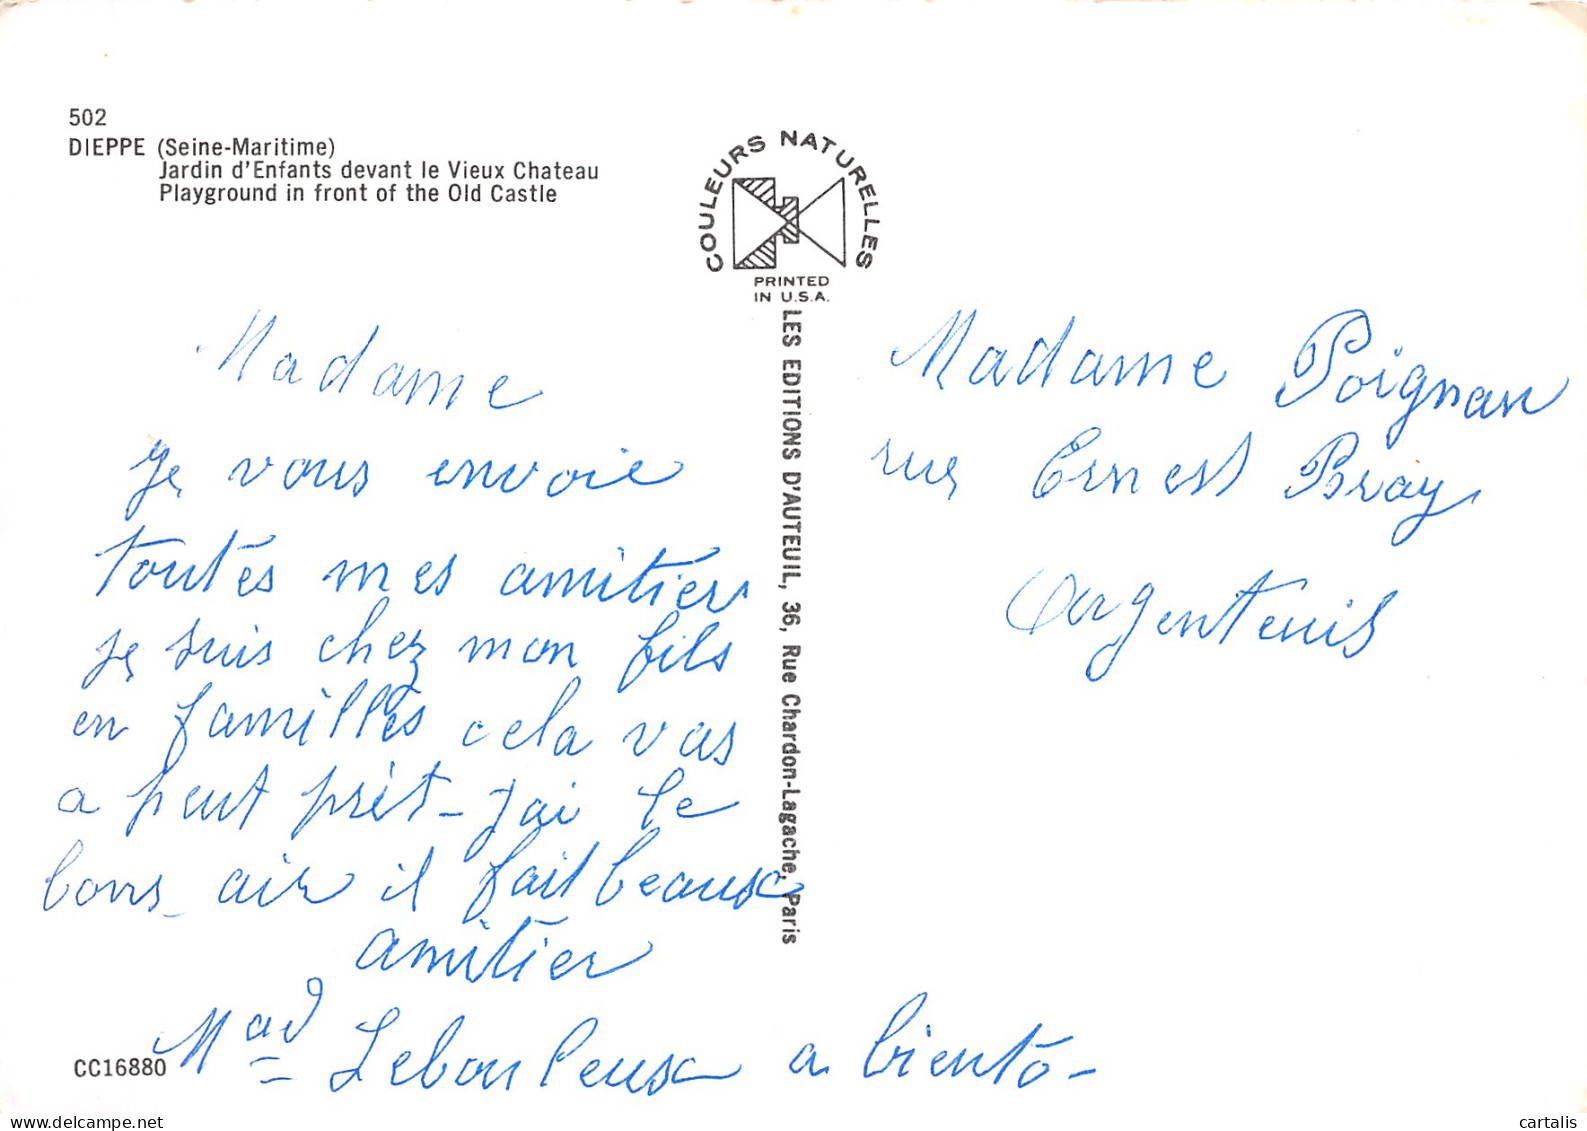 502
DIEPPE (Seine-Maritime)
Jardin d'Enfants devant le Vieux Chateau
Playground in front of the Old Castle
COULEURS NATURELLES
PRINTED
IN U.S.A.
LES EDITIONS D'AUTEUIL, 36, Rue Chardon-Lagache, Paris
Madame
Je vous envoie
toutes mes amitier
je suis chez mon fils
en familles cela vas
a peut prèt - J'ai le
bons air il fait beaux
amitier
Mad Lebouleux a biento -
Madame Poignan
rue Ernest Bray
Argenteuil
CC16880
www.delcampe.net
cartalis